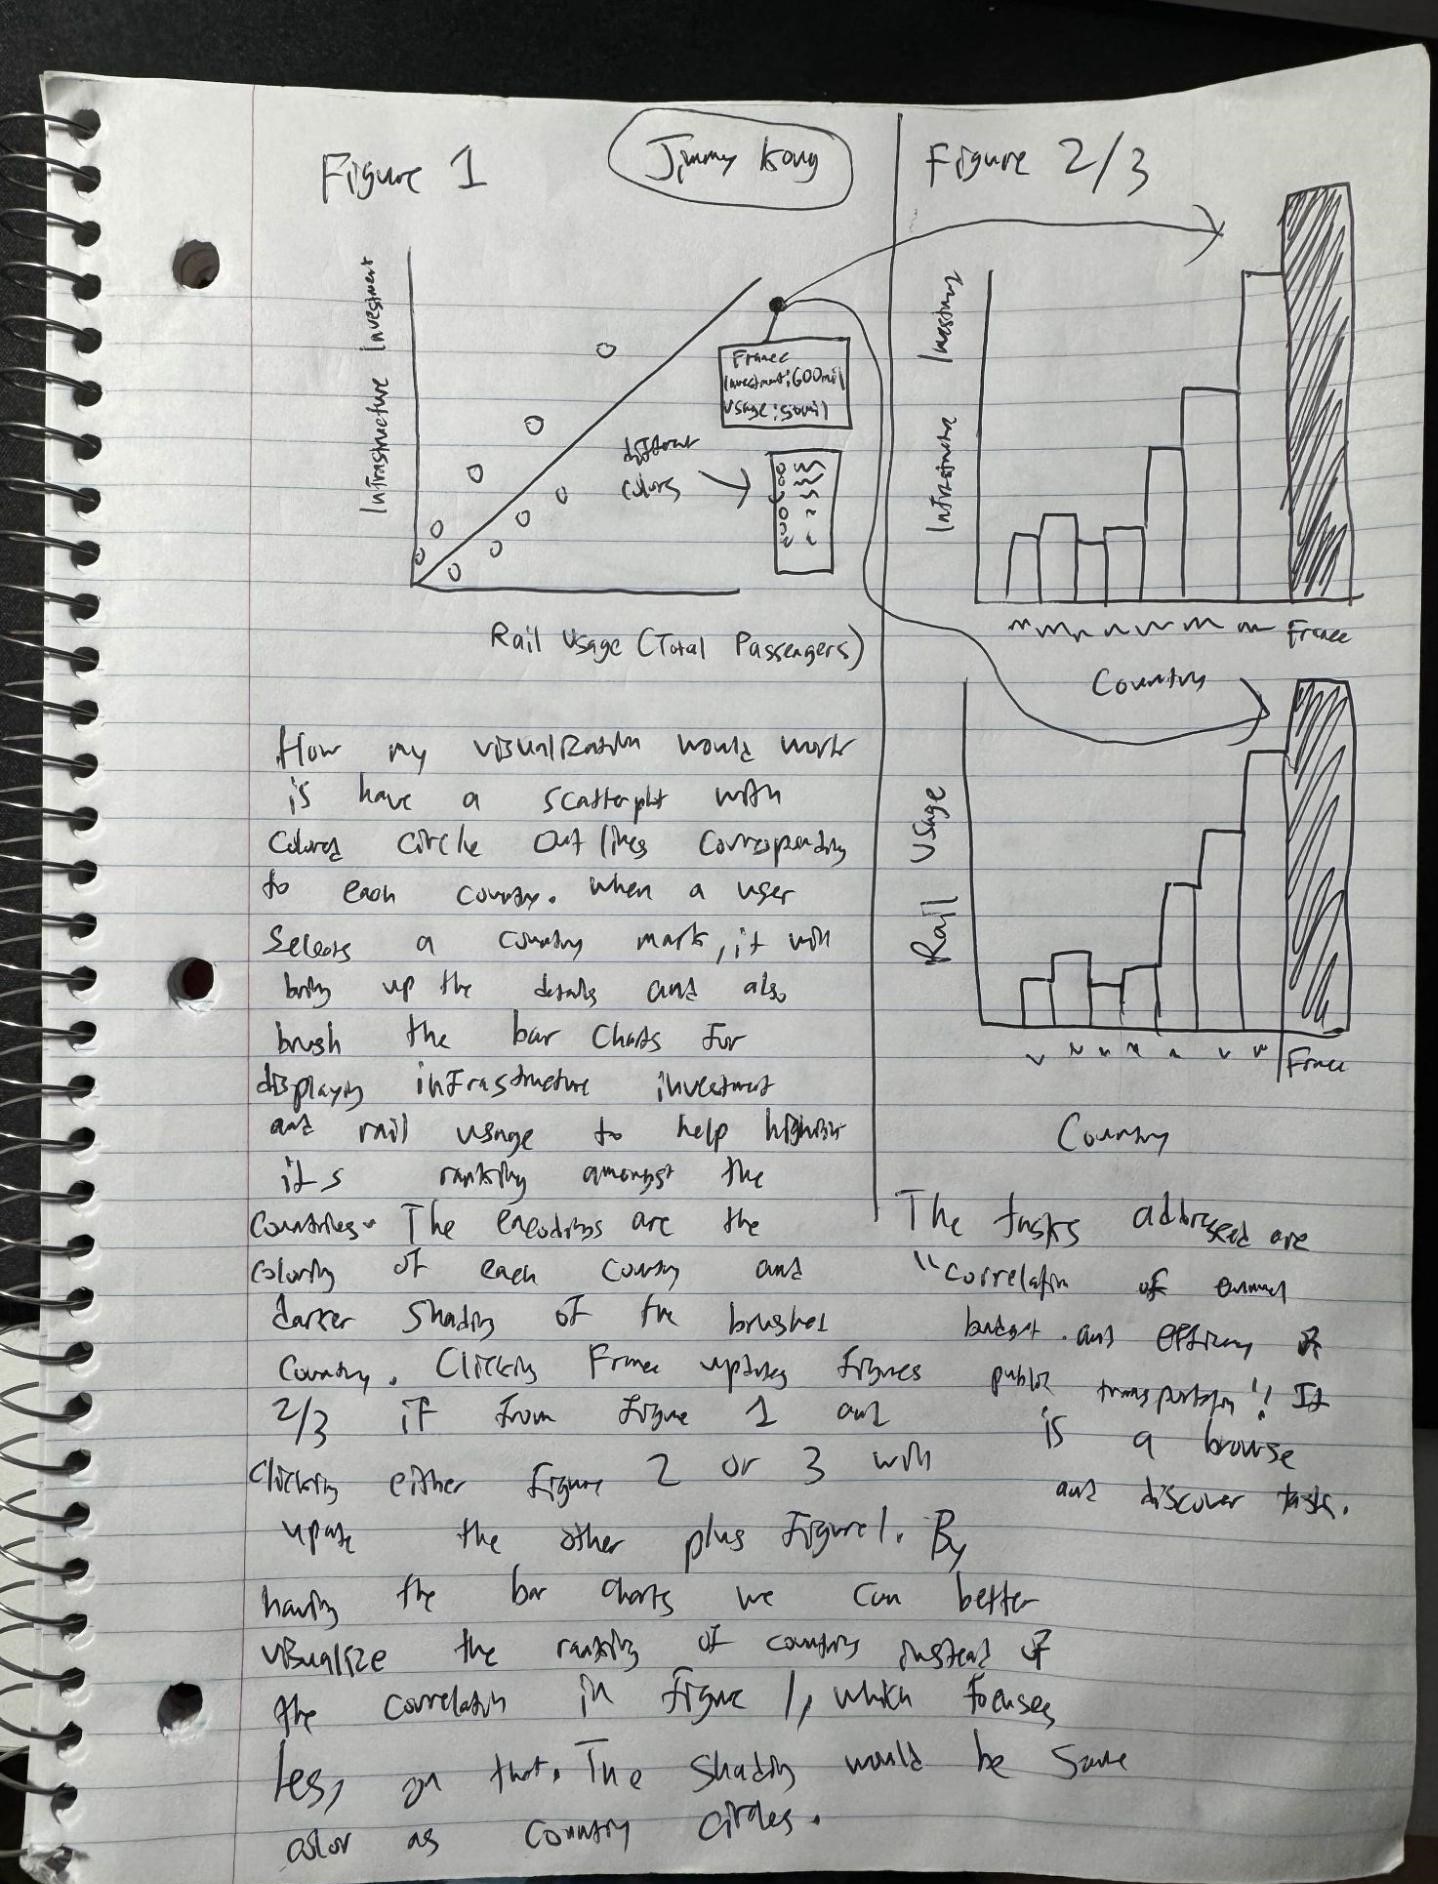 Figure 1
Jimmy Kong
Figure 2/3
Infrastructure Investment
France
Investment: 600mil
Usage: 50mil
different
colors
Rail Usage (Total Passengers)
Infrastructure Investment
France
Country
Rail Usage
France
Country
How my visualization would work
is have a scatterplot with
colored circle outlines corresponding
to each country. When a user
selects a country mark, it will
bring up the details and also
brush the bar charts for
displaying infrastructure investment
and rail usage to help highlight
its ranking amongst the
countries. The encodings are the
coloring of each country and
darker shading of the brushed
country. Clicking France updates figures
2/3 if from figure 1 and
clicking either figure 2 or 3 will
update the other plus Figure 1. By
having the bar charts we can better
visualize the ranking of country instead of
the correlation in figure 1, which focuses
less, on that. The shading would be same
color as country circles.
The tasks addressed are
"correlation of annual
budget and efficiency of
public transportation". It
is a browse
and discover task.